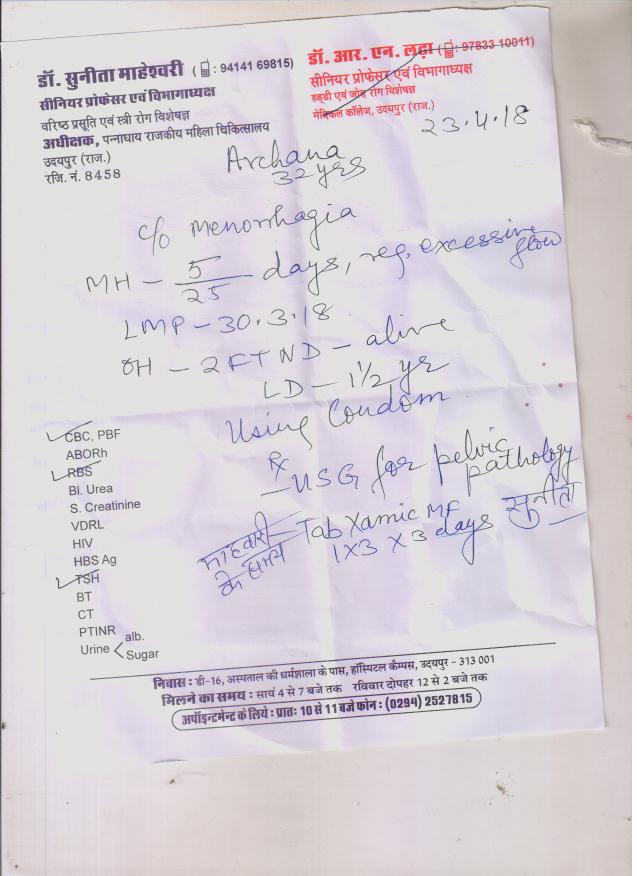 डॉ. सुनीता माहेश्वरी ( : 94141 69815)
सीनियर प्रोफेसर एवं विभागाध्यक्ष
वरिष्ठ प्रसूति एवं स्त्री रोग विशेषज्ञ
अधीक्षक, पन्नाधाय राजकीय महिला चिकित्सालय
उदयपुर (राज.)
रजि. नं. 8458
डॉ. आर. एन. लढ़ा ( : 97833 10011)
सीनियर प्रोफेसर एवं विभागाध्यक्ष
हड्डी एवं जोड़ रोग विशेषज्ञ
मेडिकल कॉलेज, उदयपुर (राज.)
23.4.18
Archana
32 yrs
c/o Menorrhagia
MH - 5/25 days, reg. excessive flow
LMP - 30.3.18
OH - 2 FTND - alive
LD - 1½ yr
Using Condom
Rx
- USG for pelvic pathology
माहवारी के समय
Tab Xamic MF
1 x 3 x 3 days
सुनीता
CBC, PBF
ABORh
RBS
Bl. Urea
S. Creatinine
VDRL
HIV
HBS Ag
TSH
BT
CT
PTINR
Urine < alb.
Sugar
निवास : डी-16, अस्पताल की धर्मशाला के पास, हॉस्पिटल कैम्पस, उदयपुर - 313 001
मिलने का समय : सायं 4 से 7 बजे तक रविवार दोपहर 12 से 2 बजे तक
अपॉइन्टमेन्ट के लिये : प्रातः 10 से 11 बजे फोन : (0294) 2527815